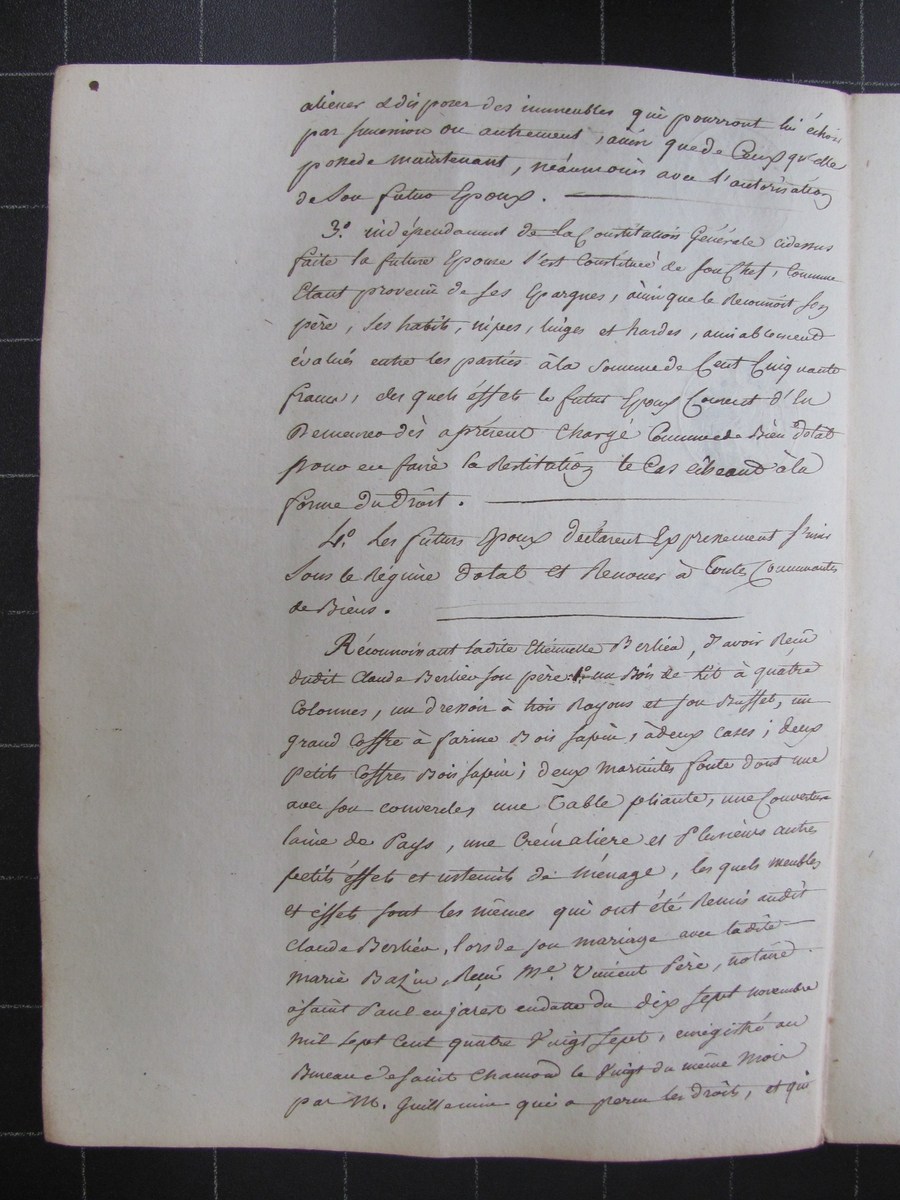 aliener & disposer des immeubles qui pourront lui échoir
par succession ou autrement, ainsi que de Ceux qu'elle
possede maintenant, néaumoins avec l'autorisation
de Son futur Epoux.
3.° indépendament de la Constitution Générale cidessus
faite la future Epouse S'est Constituée de son Chef, Comme
Etant provenu de ses Epargnes, ainsi que le Reconnoit son
père, Ses habits, nipes, linges et hardes, amiablement
évalués entre les parties à la Somme de Cent Cinquante
francs, des quels éffets le futur Epoux Consent d'En
Demeurer dès aprésent Chargé Comme de Bien dotal
pour en faire la Restitution le Cas échéant à la
forme du Droit.
4.° Les futurs Epoux déclarent Expressement S'unir
Sous le Régime dotal et Renoncer à Toutes Communautés
de Biens.
Réconnoissant ladite Etiennette Berlier, d'avoir Reçu
dudit Claude Berlier son père 1.° un Bois de Lit à quatre
Colonnes, un dressoir à trois Rayons et son Buffet, un
grand Coffre à farine Bois Sapin, à deux cases; deux
petits Coffres Bois sapin; deux marmites fonte dont une
avec son convercles, une Table pliante, une Couverture
laine de Pays, une Crémaliere et Plusieurs autres
petits éffets et ustensils de ménage, les quels meubles
et éffets sont les mêmes qui ont été Remis audit
Claude Berlier, lors de son mariage avec ladite
Marie Bazin, Reçu M.e Vincent Père, notaire
à Saint Paul en jarest en datte du dix Sept novembre
mil Sept Cent quatre Vingt Sept, enregistré au
Bureau de Saint Chamond le Vingt du même Mois
par M. Guillemin qui a perçu les droits, et qui